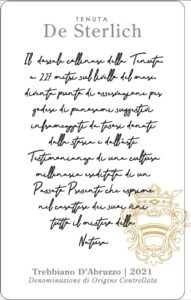 TENUTA
De Sterlich
Il dorsale collinare della Tenuta,
a 227 metri sul livello del mare,
diventa punto di osservazione per
godere di panorami suggestivi
impreziositi da tesori donati
dalla storia e dall'arte.
Testimonianza di una cultura
millenaria ereditata da un
Passato Presente che esprime
nel carattere dei suoi vini
tutto il mistero della
Natura.
Trebbiano D'Abruzzo | 2021
Denominazione di Origine Controllata